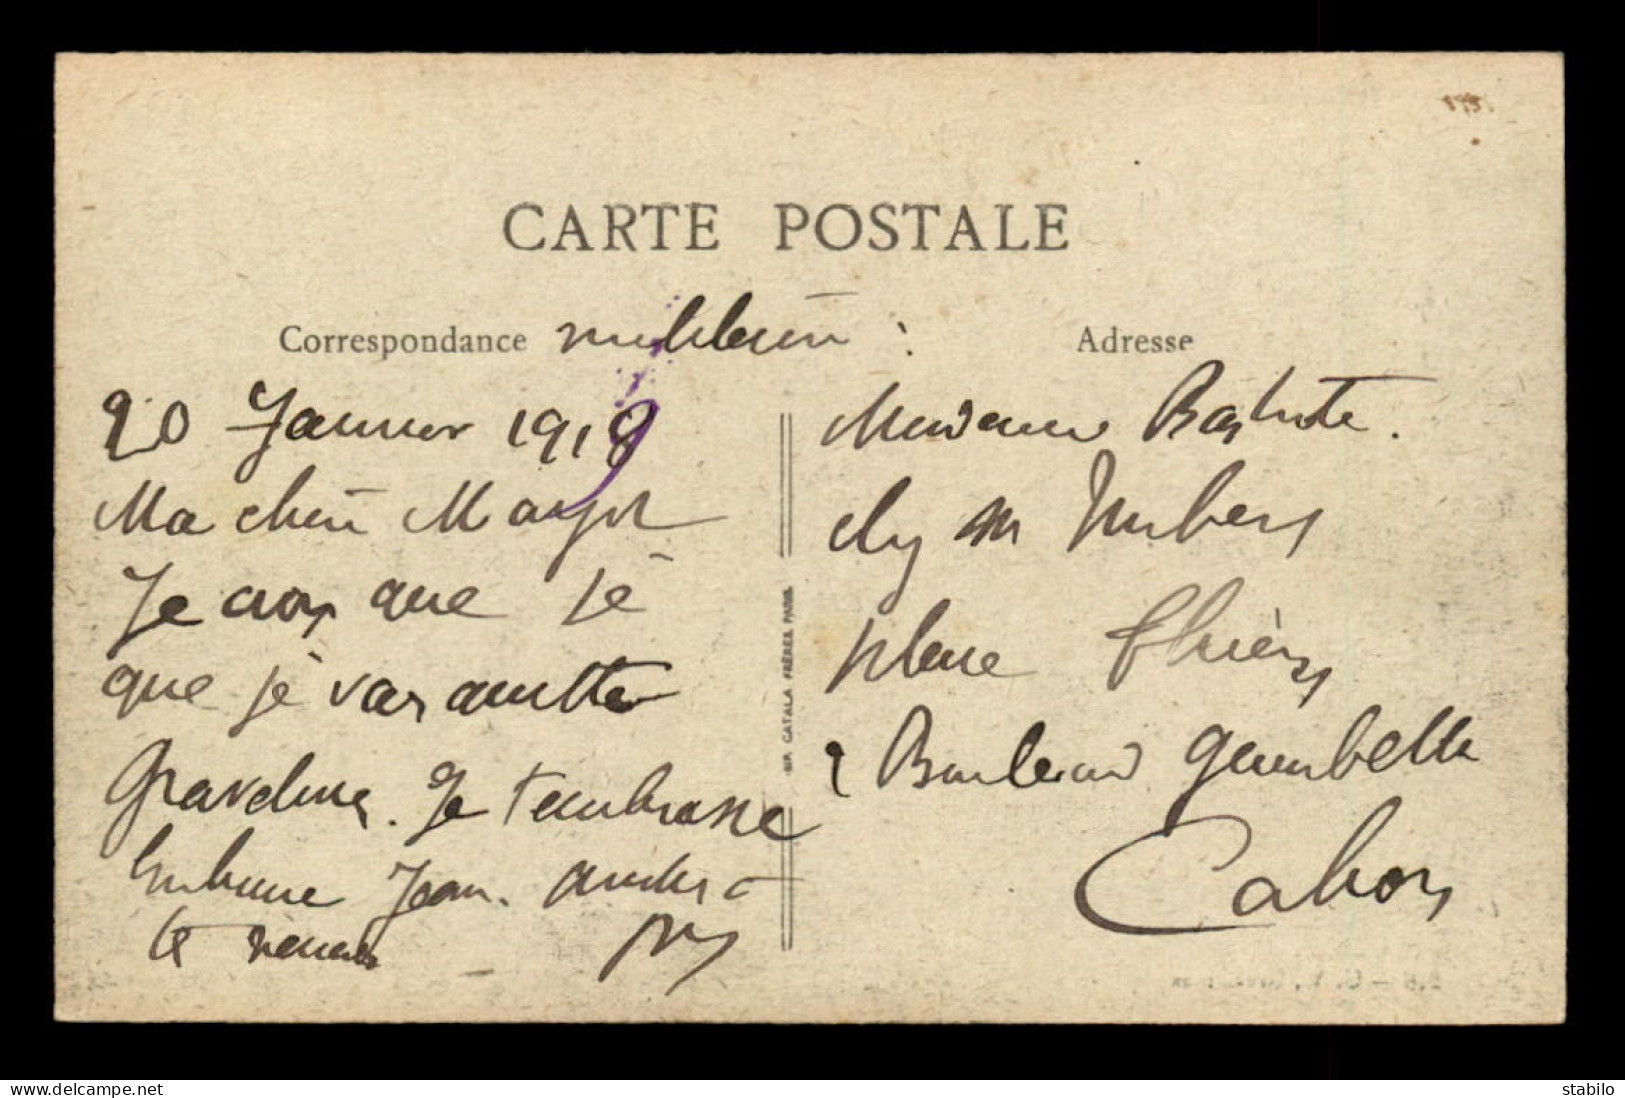 CARTE POSTALE
Correspondance militaire
Adresse
20 Janvier 1918
Ma chère Margot
Je crois que je
que je vais quitter
Gravelines. Je t'embrasse
Embrasse Jean.
te
Madame
chez Mr
place Thiers
2 Boulevard Gambetta
Cahors
IMP. CATALA FRÈRES PARIS
delcampe.net
stabilo